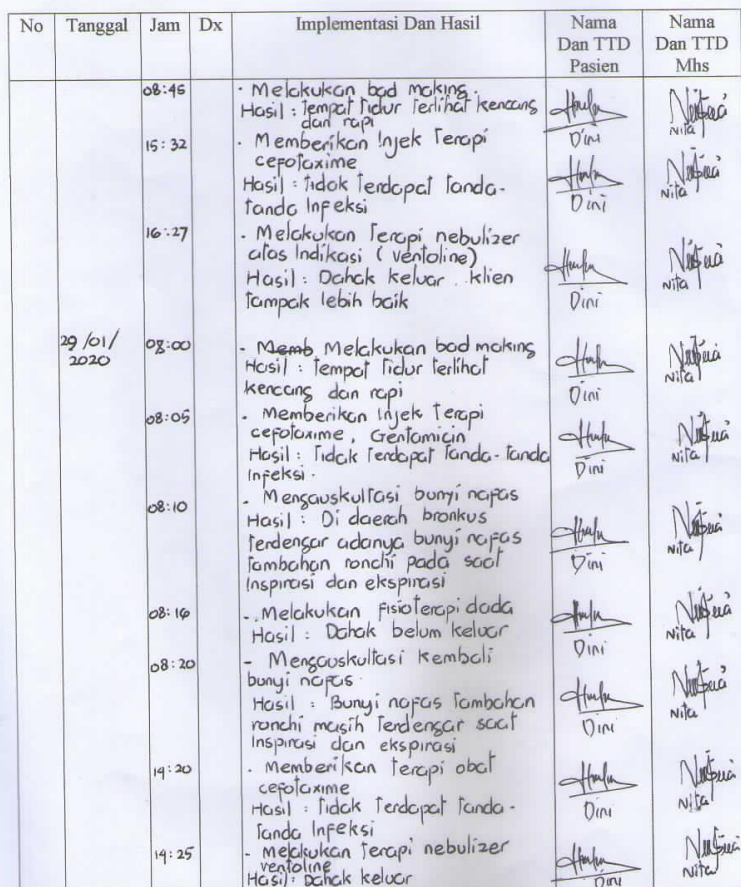 No Tanggal Jam Dx Implementasi Dan Hasil Nama Dan TTD Pasien Nama Dan TTD Mhs
08:45 - Melakukan bad making.
Hasil : Tempat Tidur Terlihat kencang
dan rapi
Dini Nita
15:32 - Memberikan Injek Terapi
cefotaxime
Hasil : Tidak Terdapat Tanda-
Tanda Infeksi
Dini Nita
16:27 - Melakukan Terapi nebulizer
atas Indikasi (Ventoline)
Hasil : Dahak keluar . klien
tampak lebih baik
Dini Nita
29/01/
2020
08:00 - Memb Melakukan bad making
Hasil : Tempat Tidur terlihat
kencang dan rapi
Dini Nita
08:05 - Memberikan Injek Terapi
cefotaxime, Gentamicin
Hasil : Tidak Terdapat Tanda-tanda
Infeksi.
Dini Nita
08:10 - Mengauskultasi bunyi napas
Hasil : Di daerah bronkus
Terdengar adanya bunyi napas
Tambahan ronchi pada saat
Inspirasi dan ekspirasi
Dini Nita
08:16 - Melakukan Fisioterapi dada
Hasil : Dahak belum keluar
Dini Nita
08:20 - Mengauskultasi kembali
bunyi napas.
Hasil : Bunyi napas Tambahan
ronchi masih Terdengar saat
Inspirasi dan ekspirasi
Dini Nita
14:20 - Memberikan terapi obat
cefotaxime
Hasil : Tidak Terdapat Tanda-
Tanda Infeksi
Dini Nita
14:25 - melakukan terapi nebulizer
ventoline
Hasil : Dahak keluar
Dini Nita